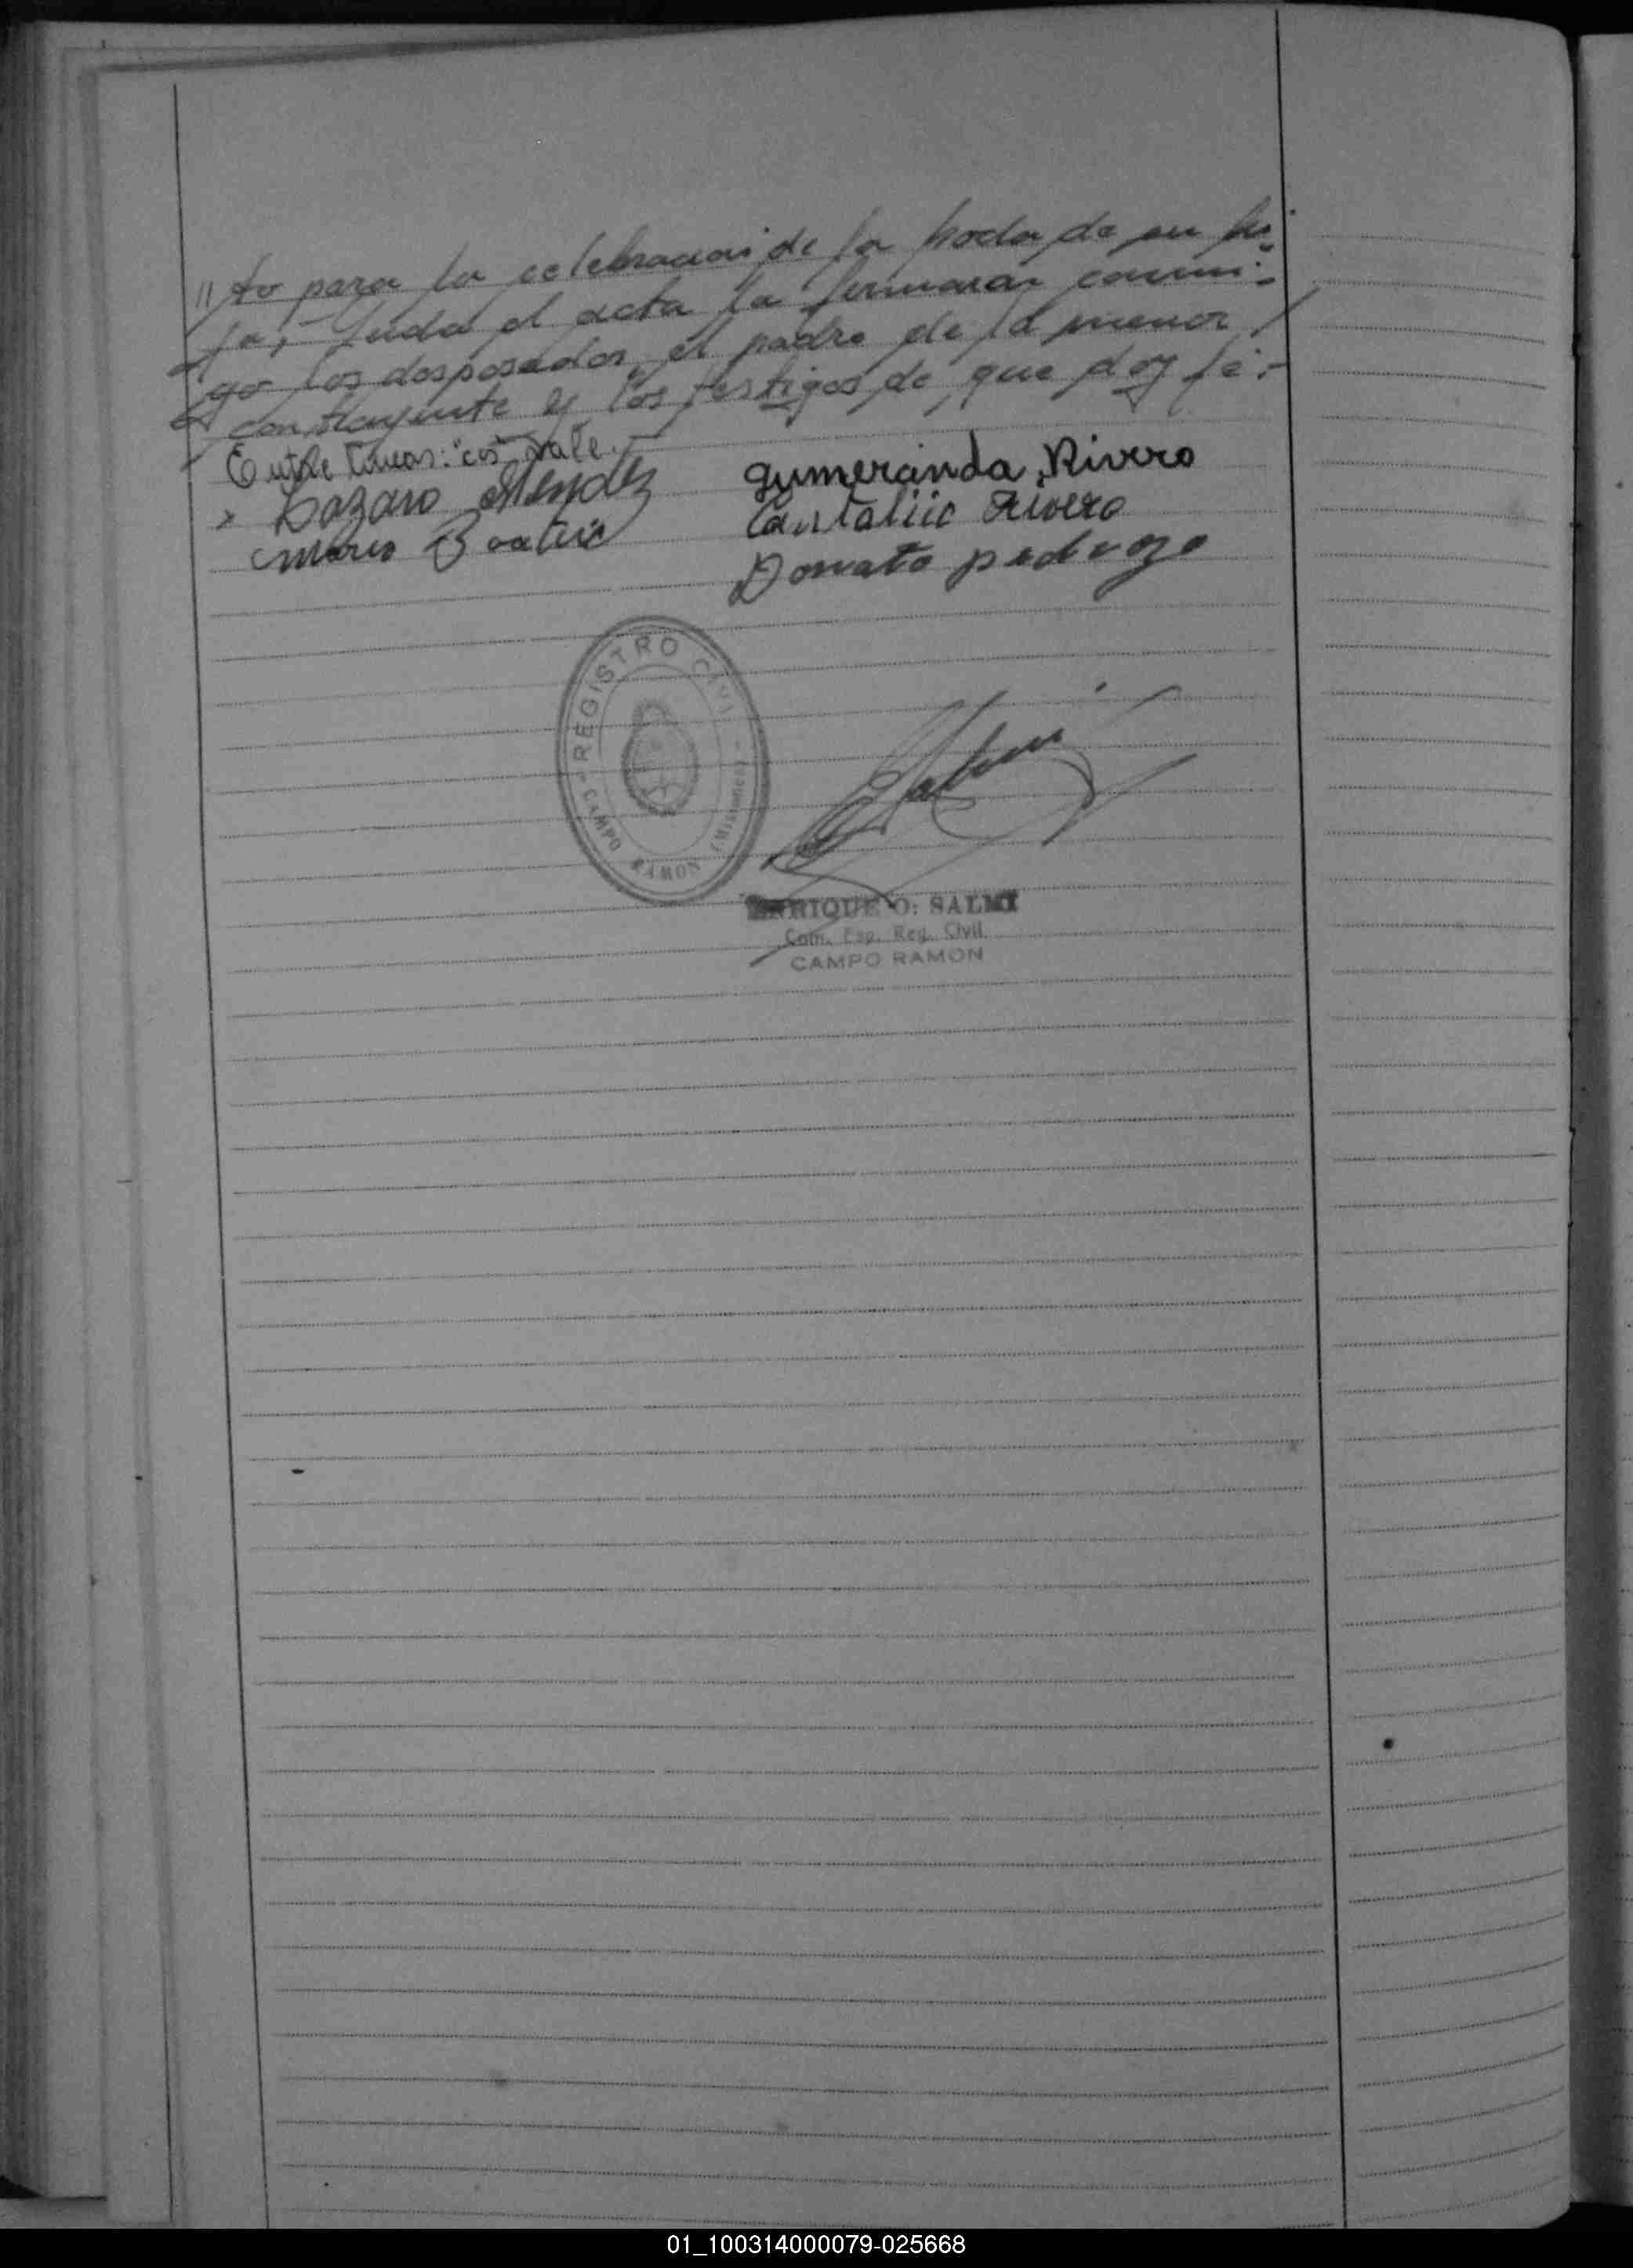 "to para la celebración de la boda de su hi-
ja,- leida el acta la firmaran conmi-
go los desposados, el padre de la menor
contrayente y los testigos de que doy fé.-
Entre lineas: "co" Vale.-
Lazaro Mendez
gumeranda, Rivero
Cantalicio Rivero
Mario
Donato pedrozo
REGISTRO CIVIL
CAMPO RAMON (Misiones)
ENRIQUE O. SALMI
Com. Esp. Reg. Civil
CAMPO RAMON
01_100314000079-025668